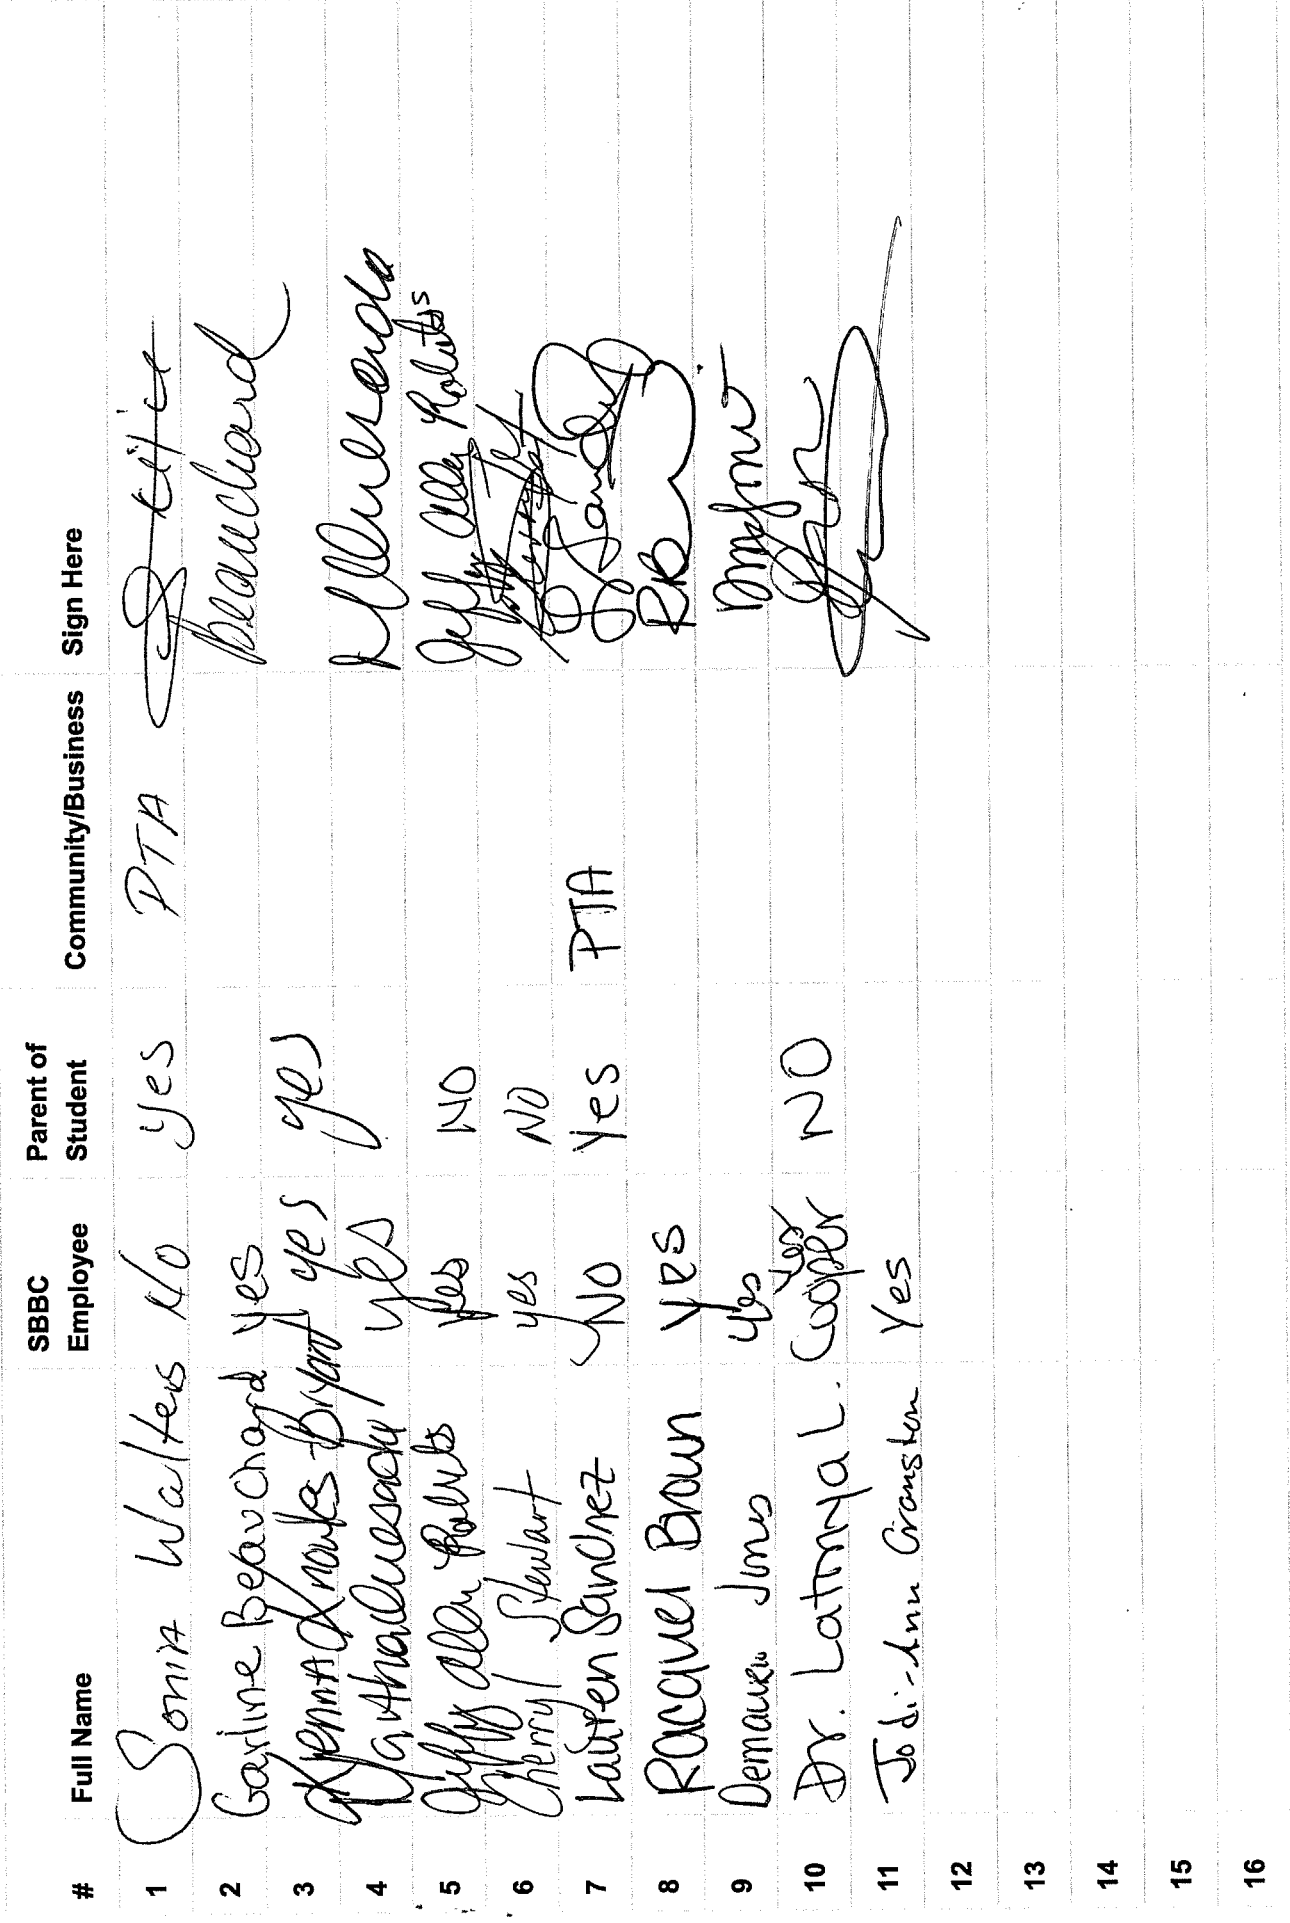 # Full Name SBBC Employee Parent of Student Community/Business Sign Here
1 Sonia Walters No Yes PTA
2 Garline Beauchard Yes Beauchard
3 Knowles-Bryant yes yes
4 yes
5 Jeffry Allen Roberts Yes NO Jeffry Allen Roberts
6 Cherryl Stewart yes NO
7 Lauren Sanchez No Yes PTA
8 Racquel Brown Yes
9 Jones Yes
10 Dr. Latonya L. Cooper Yes NO
11 Jodi-Ann Cranston Yes
12
13
14
15
16